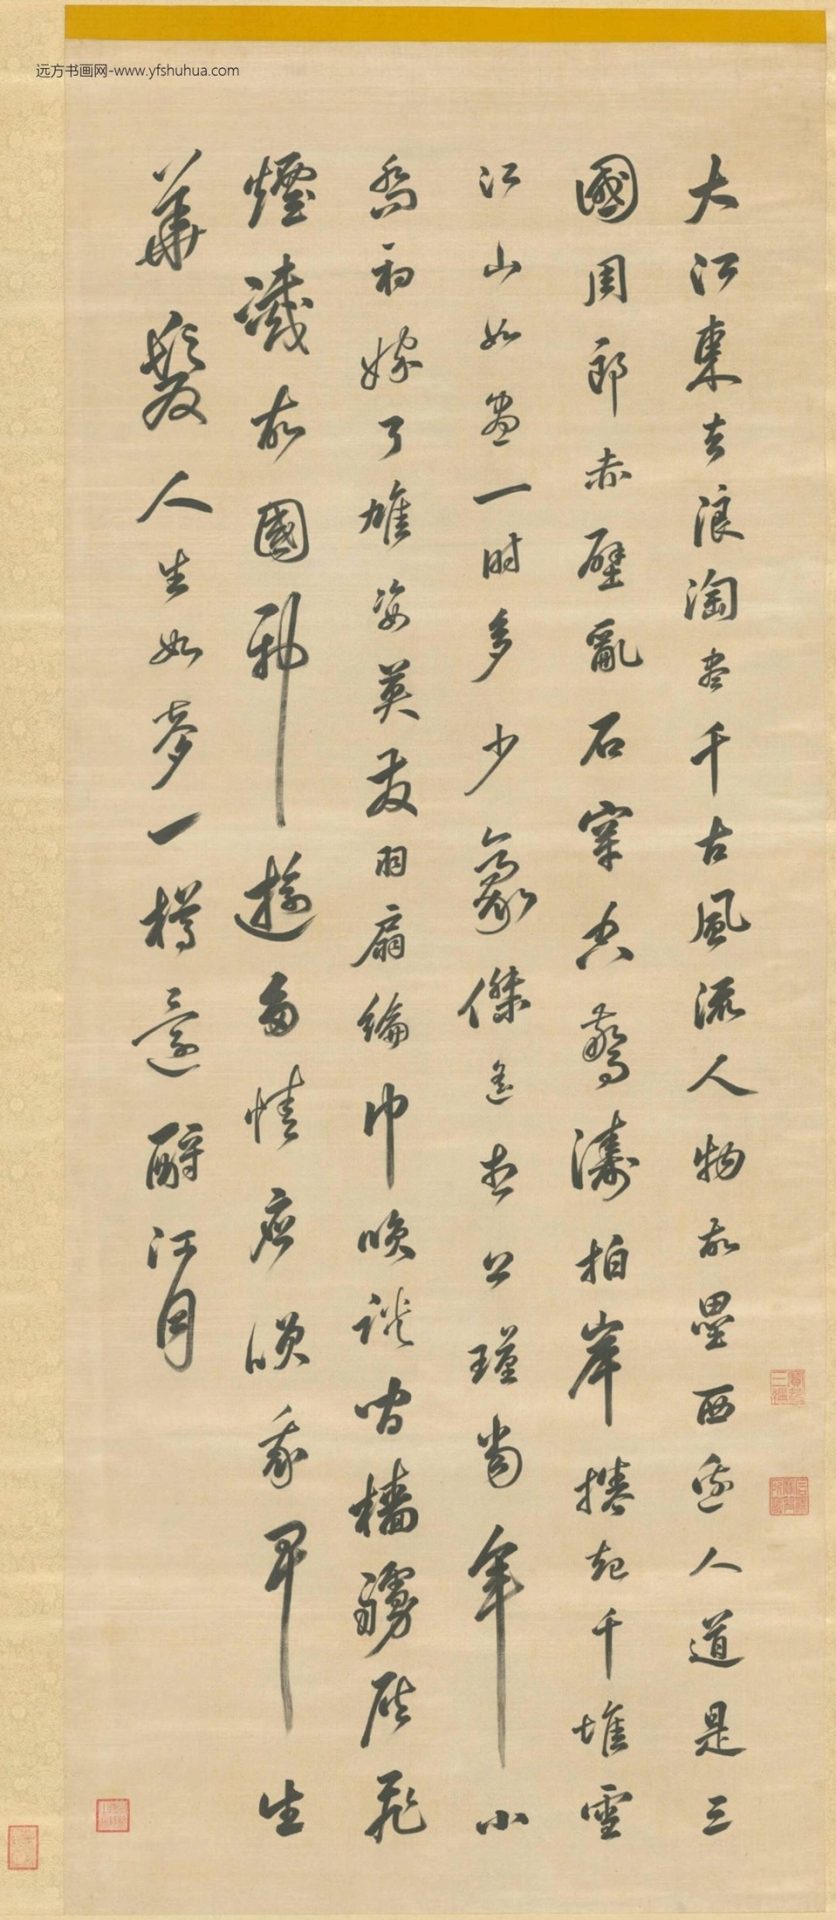 远方书画网-www.yfshuhua.com
大江東去浪淘盡千古風流人物故壘西邊人道是三
國周郎赤壁亂石穿空驚濤拍岸捲起千堆雪
江山如畫一時多少豪傑遙想公瑾當年小
喬初嫁了雄姿英發羽扇綸巾咲談間檣艣灰飛
煙滅故國神遊多情應咲我早生
華髮人生如夢一樽還酹江月
寶笈三編